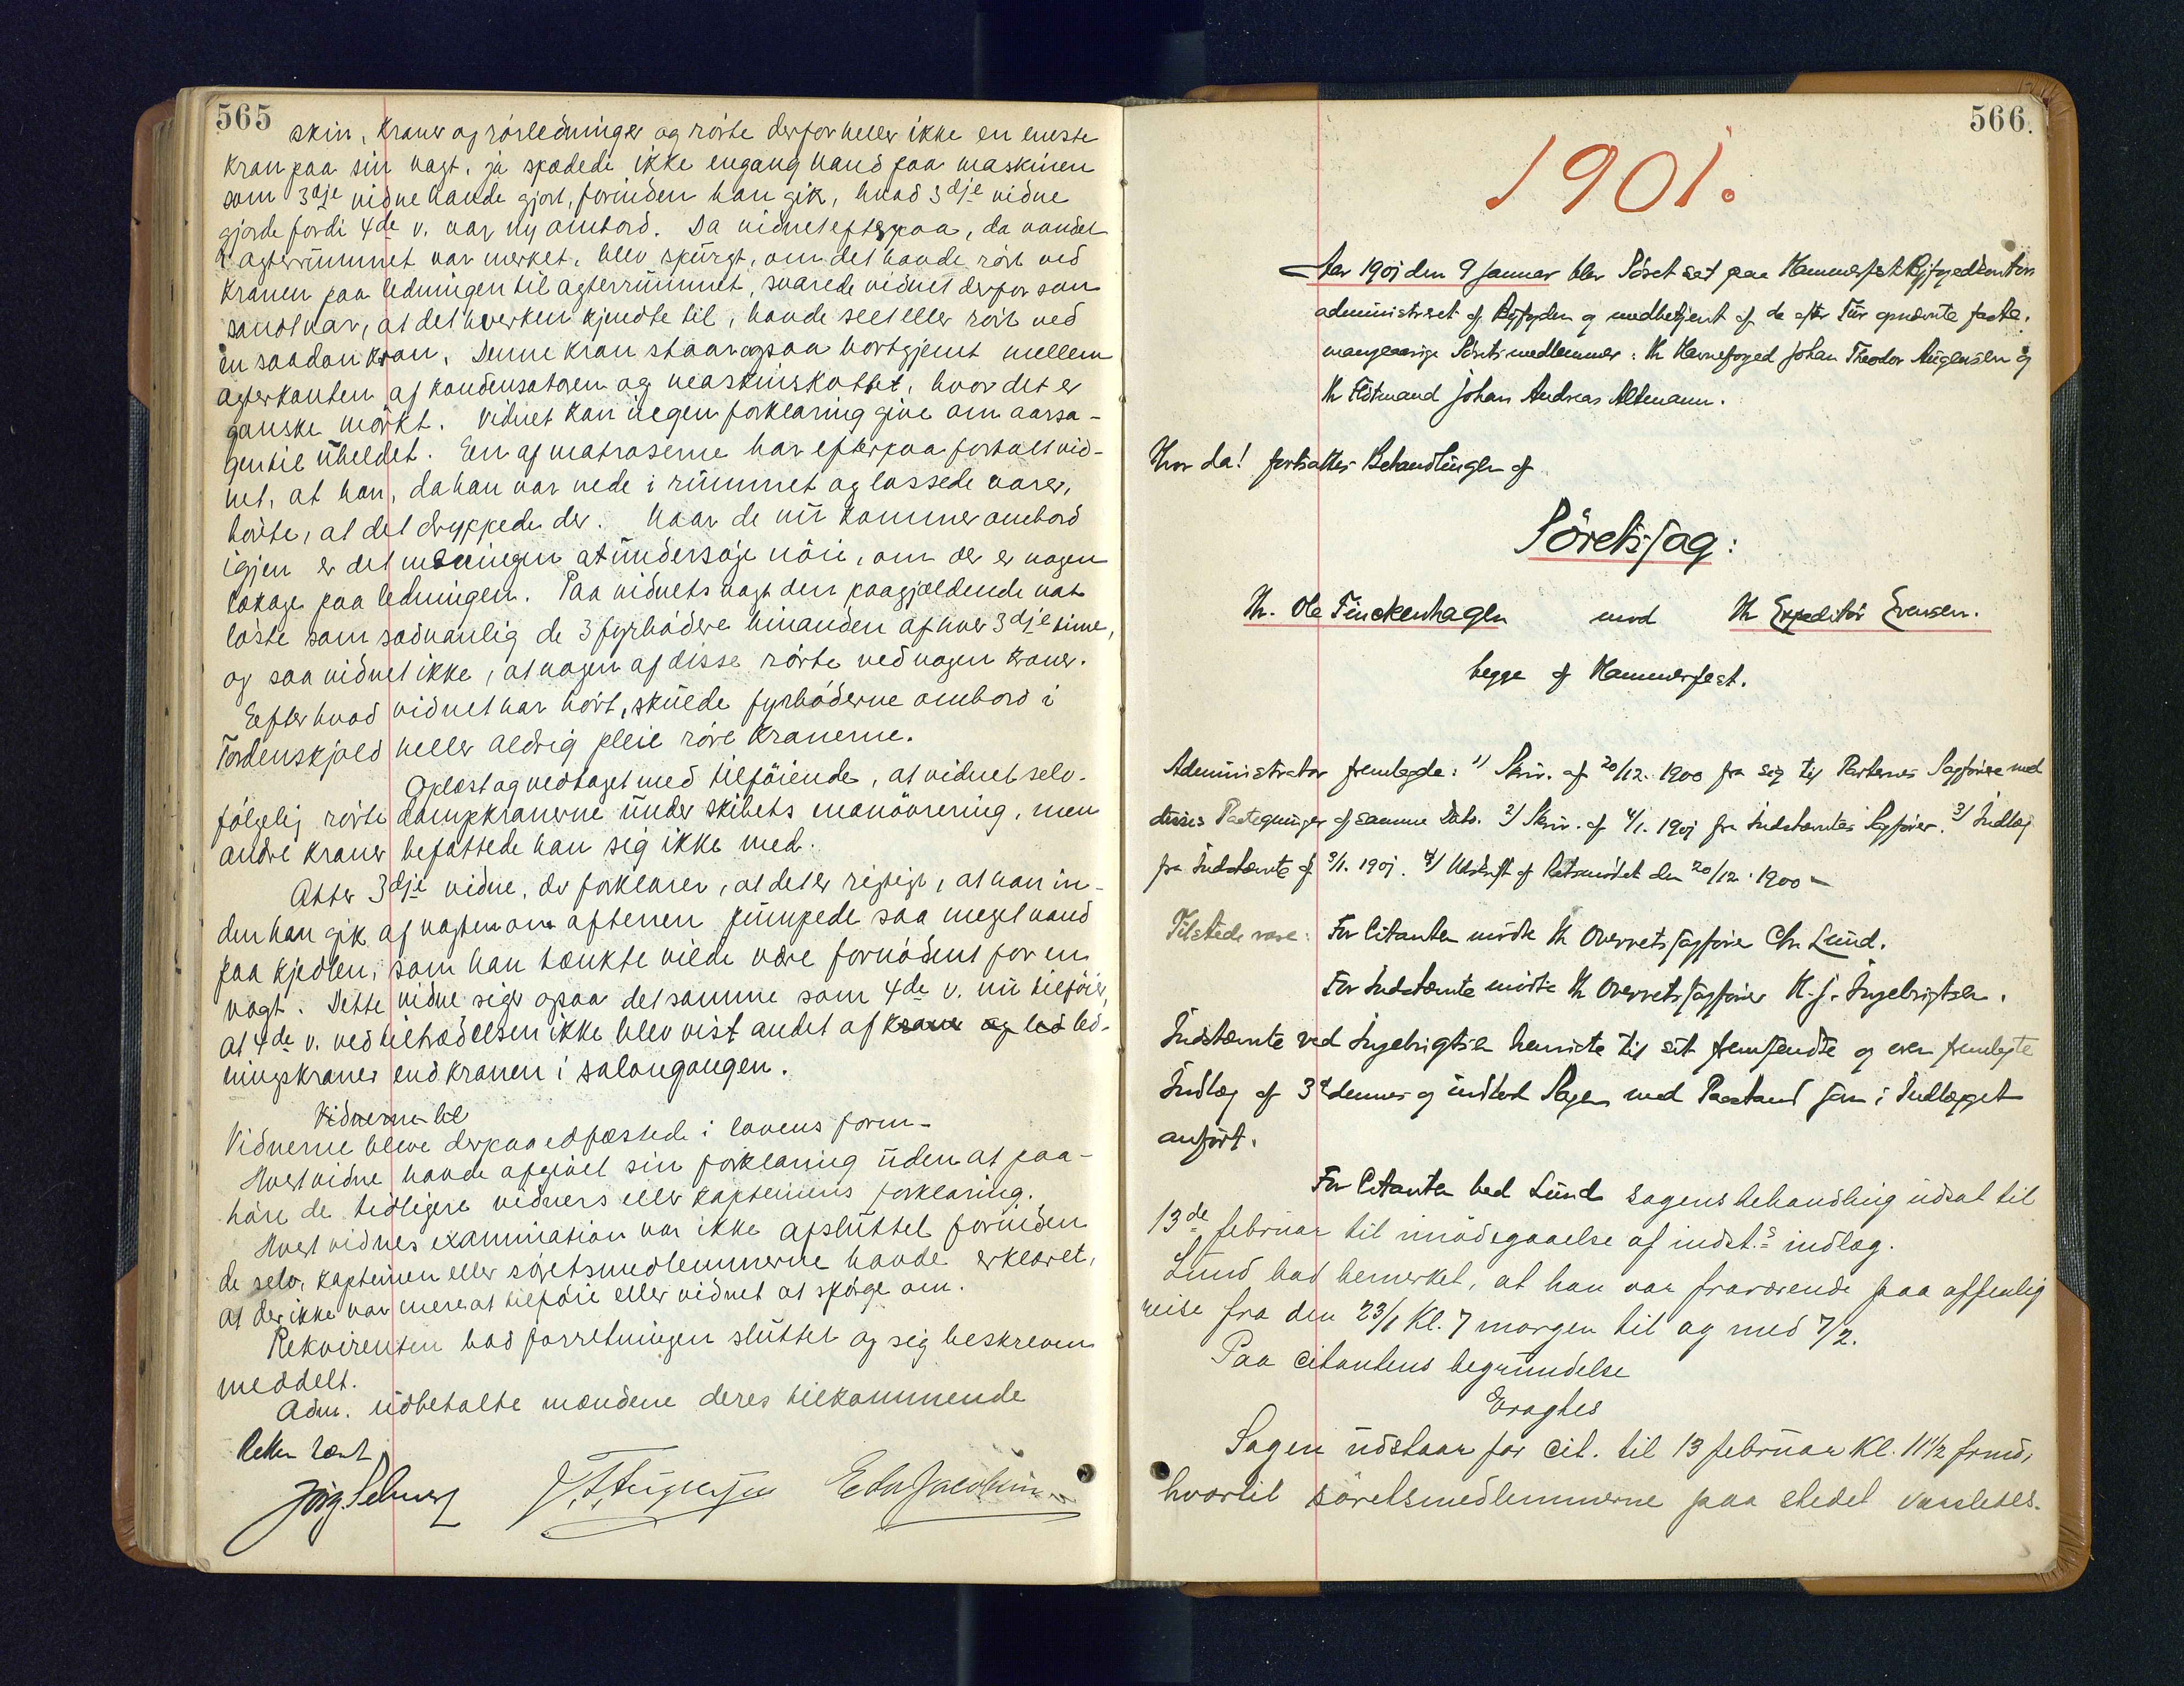 565
skin, kraner og rörledninger og rörte derfor heller ikke en eneste
kran paa sin vagt, ja spædede ikke engang vand paa maskinen
som 3dje vidne havde gjort, forinden han gik, hvad 3dje vidne
gjorde fordi 4de v. var ny ombord. Da vidnet efterpaa, da vandet
i agterrummet var merket, blev spurgt, om det havde rört ved
kranen paa ledningen til agterrummet, svarede vidnet derfor som
sandt var, at det hverken kjendte til, havde seet eller rört ved
en saadan kran. Denne kran staar ogsaa bortgjemt mellem
agterkanten af kondensatoren og maskinskottet, hvor det er
ganske mörkt. Vidnet kan ingen forklaring give om aarsa-
gen til uheldet. En af matroserne har efterpaa fortalt vid-
net, at han, da han var nede i rummet og lossede varer,
hörte, at det dryppede der. Naar de nu kommer ombord
igjen er det meningen at undersöge nöie, om der er nogen
lækage paa ledningen. Paa vidnets vagt den paagjældende nat
löste som sædvanlig de 3 fyrbödere hinanden af hver 3dje time,
og saa vidnet ikke, at nogen af disse rörte ved nogen kraner.
Efter hvad vidnet har hört, skulde fyrböderne ombord i
Tordenskjold heller aldrig pleie röre kranerne.
Oplæst og vedtaget med tilföiende, at vidnet selv-
fölgelig rörte dampkranerne under skibets manövrering, men
andre kraner befattede han sig ikke med.
Atter 3dje vidne, der forklarer, at det er rigtigt, at han in-
den han gik af vagten om aftenen pumpede saa meget vand
paa kjedlen, som han tænkte vilde være fornödent for en
vagt. Dette vidne siger ogsaa det samme som 4de v. nu tilföier,
at 4de v. ved tiltrædelsen ikke blev vist andet af kraner og led led-
ningskraner end kranen i salongangen.
Vidnerne bl
Vidnerne bleve derpaa edfæstede i lovens form.
Hvert vidne havde afgivet sin forklaring uden at paa-
höre de tidligere vidners eller kapteinens forklaring.
Hvert vidnes examination var ikke afsluttet forinden
de selv, kapteinen eller söretsmedlemmerne havde erklæret,
at der ikke var mere at tilföie eller vidnet at spörge om.
Rekvirenten bad forretningen sluttet og sig beskreven
meddelt.
Adm. udbetalte mændene deres tilkommende
Retten hævet
J. T. Augensen
566.
1901.
Aar 1901 den 9 Januar blev Söret sat paa Hammerfest Byfogedkontor
administreret af Byfogden og medbetjent af de efter Tur opnævnte faste,
mangeaarige Söretsmedlemmer: Hr Havnefoged Johan Theodor Augensen og
Hr Flötmand Johan Andreas Altmann.
Hvor da! fortsattes Behandlingen af
Söretssag:
Hr. Ole Finckenhagen mod Hr Expeditör Evensen.
begge af Hammerfest.
Administrator fremlagde: 1) Skriv. af 20/12. 1900 fra sig til Parternes Sagförere med
disses Paategninger af samme Dato. 2) Skriv. af 4/1. 1901 fra Indstævntes Sagförer. 3) Indlæg
fra Indstævnte af 3/1. 1901. 4) Udskrift af Retsmödet den 20/12. 1900 –
Tilstede vare: For Citanten mödte Hr Overretssagförer Chr. Lund.
For Indstævnte mödte Hr Overretssagförer K. J. Ingebrigtsen.
Indstævnte ved Ingebrigtsen henviste til sit fremsendte og oven fremlagte
Indlæg af 3de dennes og indlod Sagen med Paastand som i Indlægget
anfört.
For Citanten bad Lund sagens behandling udsat til
13de februar til imödegaaelse af indst.s indlæg.
Lund bad bemerket, at han var fraværende paa offentlig
reise fra den 23/1 Kl. 7 morgen til og med 7/2.
Paa citantens begrundelse
Eragtes
Sagen udstaar for cit. til 13 februar Kl. 11 1/2 frmd,
hvortil söretsmedlemmerne paa stedet varsledes.